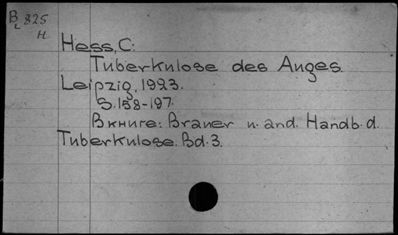 B 825
L
H
Hess, C:
Tuberkulose des Auges.
Leipzig, 1923.
S. 158-197.
В книге: Brauer u. and. Handb. d.
Tuberkulose. Bd. 3.